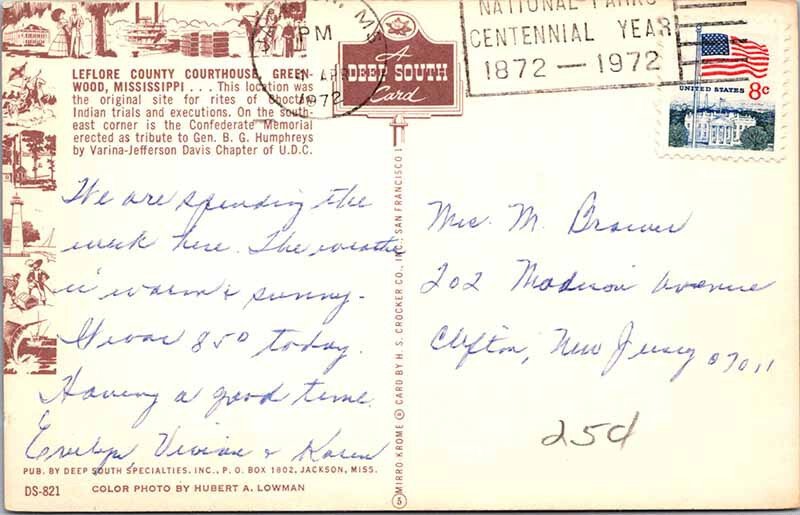 NATIONAL PARKS
CENTENNIAL YEAR
1872 — 1972
PM
APR
1972
A
DEEP SOUTH
Card
UNITED STATES 8c
LEFLORE COUNTY COURTHOUSE, GREEN-
WOOD, MISSISSIPPI . . . This location was
the original site for rites of Choctaw
Indian trials and executions. On the south-
east corner is the Confederate Memorial
erected as tribute to Gen. B. G. Humphreys
by Varina-Jefferson Davis Chapter of U.D.C.
We are spending the
week here. The weather
is warm & sunny.
It was 85° today.
Having a good time.
Evelyn, Vivian & Karen
PUB. BY DEEP SOUTH SPECIALTIES. INC., P. O. BOX 1802, JACKSON, MISS.
DS-821 COLOR PHOTO BY HUBERT A. LOWMAN
5 MIRRO KROME ® CARD BY H. S. CROCKER CO., INC., SAN FRANCISCO 1
Mrs. M. Brower
202 Madison Avenue
Clifton, New Jersey 07011
25¢